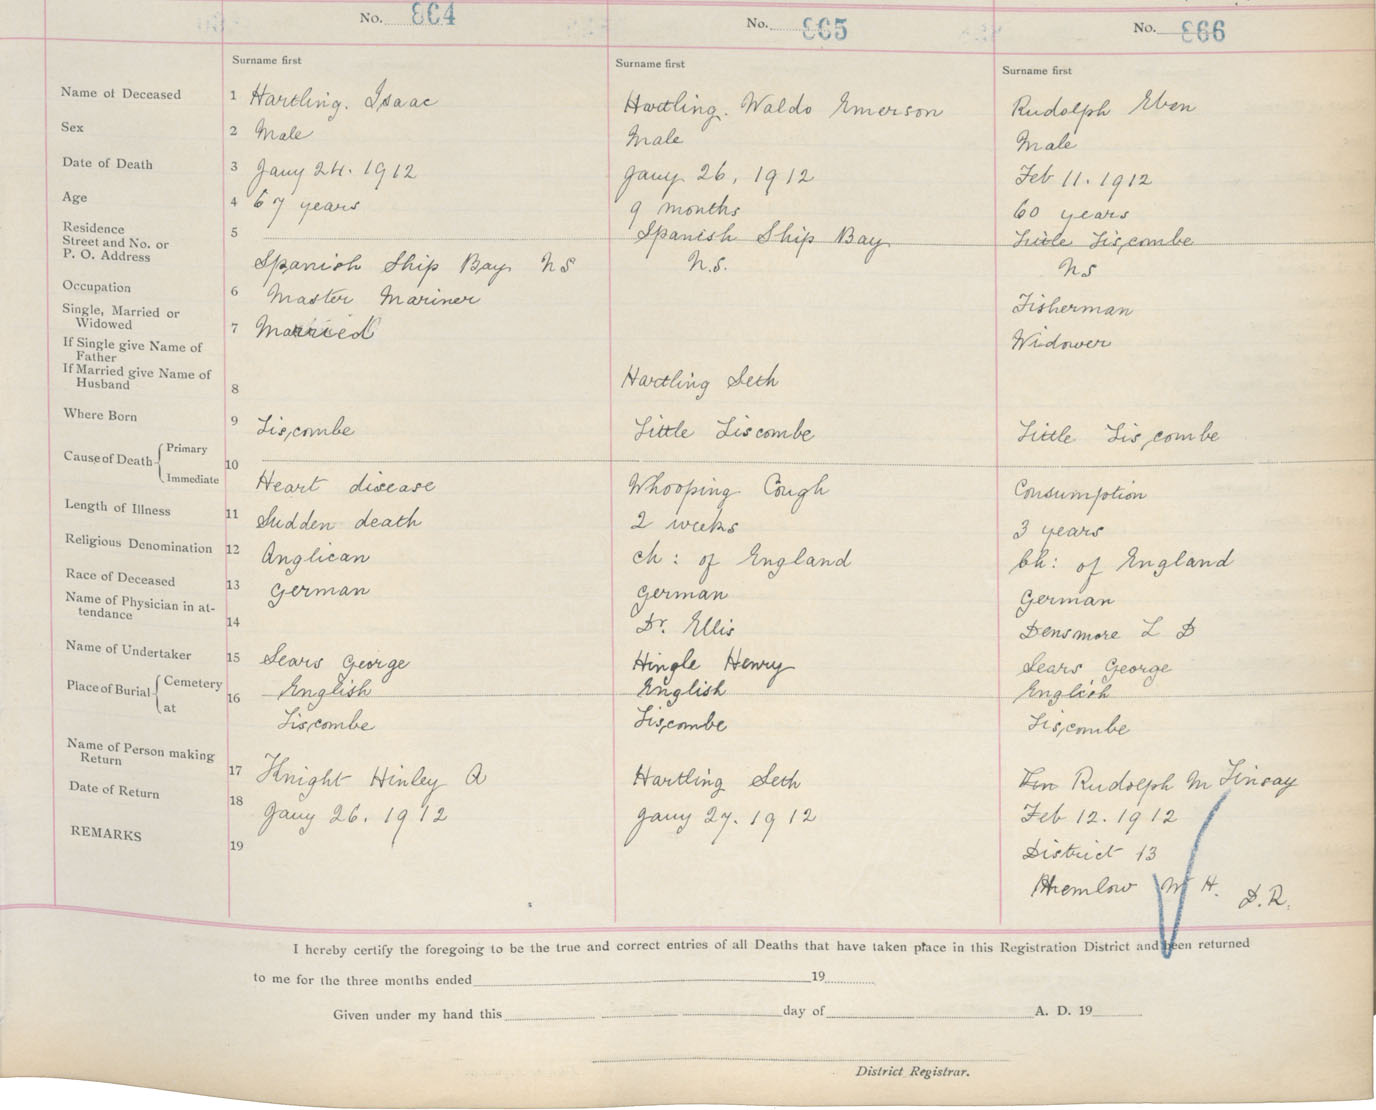 No. 864 No. 865 No. 866
Surname first Surname first Surname first
Name of Deceased 1 Hartling. Isaac Hartling. Waldo Emerson Rudolph Eben
Sex 2 Male Male Male
Date of Death 3 Jany 24. 1912 Jany 26, 1912 Feb 11. 1912
Age 4 67 years 9 months 60 years
Residence
Street and No. or 5 Spanish Ship Bay Little Liscombe
P. O. Address Spanish Ship Bay NS N.S. NS
Occupation 6 Master Mariner Fisherman
Single, Married or
Widowed 7 Married Widower
If Single give Name of
Father
If Married give Name of
Husband 8 Hartling Seth
Where Born 9 Liscombe Little Liscombe Little Liscombe
Cause of Death Primary
Immediate 10 Heart disease Whooping Cough Consumption
Length of Illness 11 Sudden death 2 weeks 3 years
Religious Denomination 12 Anglican ch: of England Ch: of England
Race of Deceased 13 German German German
Name of Physician in at-
tendance 14 Dr. Ellis Densmore L D
Name of Undertaker 15 Sears George Hingle Henry Sears George
Place of Burial Cemetery 16 English English English
at Liscombe Liscombe Liscombe
Name of Person making
Return 17 Knight Hinley A Hartling Seth Rudolph M Linsay
Date of Return 18 Jany 26. 1912 Jany 27. 1912 Feb 12. 1912
REMARKS 19 District 13
Hemlow W H. D.R.
I hereby certify the foregoing to be the true and correct entries of all Deaths that have taken place in this Registration District and been returned
to me for the three months ended 19
Given under my hand this day of A. D. 19
District Registrar.